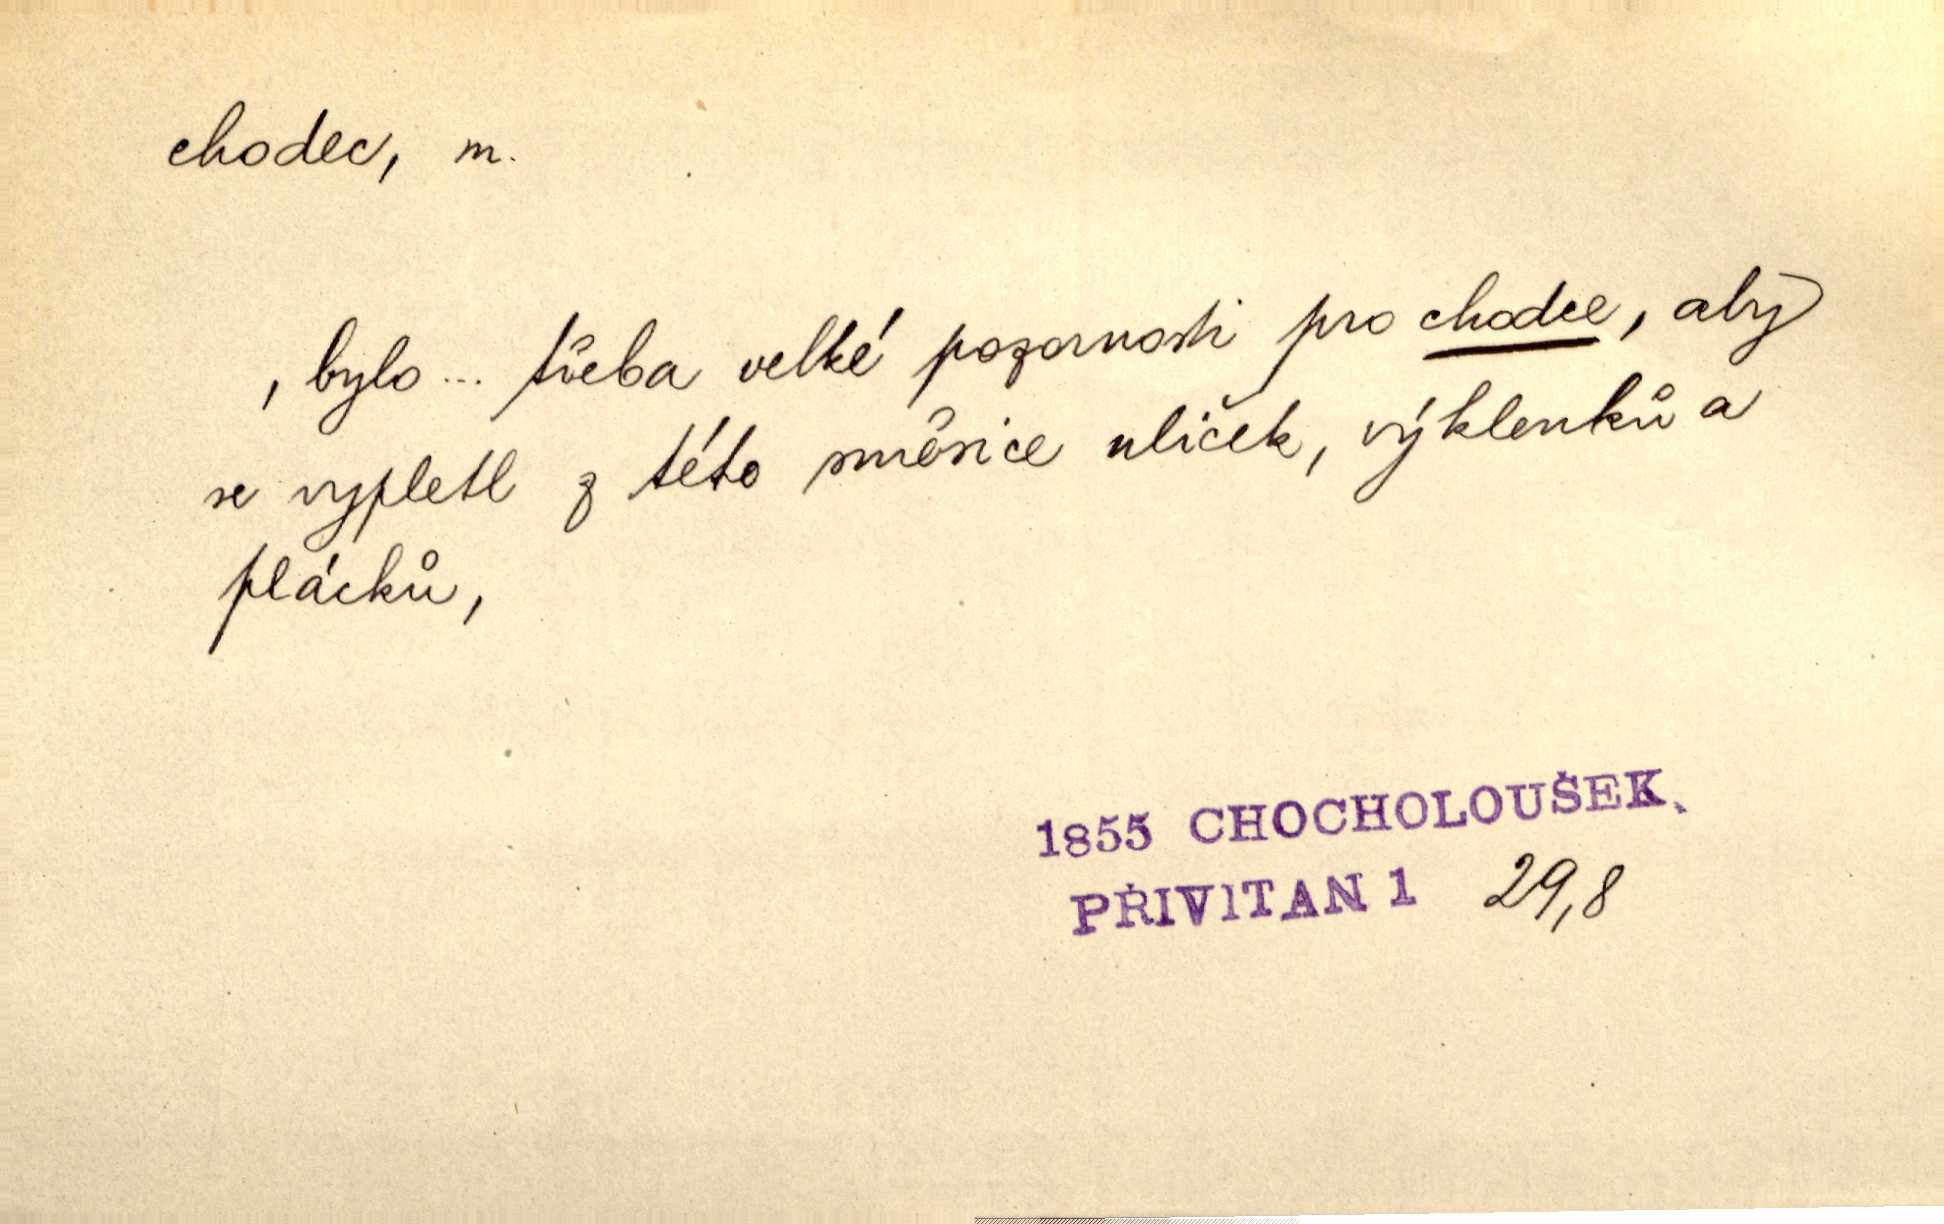 chodec, m.
, bylo... třeba velké pozornosti pro chodce, aby
se vypletl z této směsice uliček, výklenků a
plácků,
1855 CHOCHOLOUŠEK,
PŘIVITAN 1 29,8